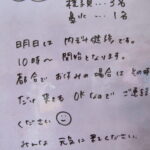 …3名
…1名
明日は 内科健診です。
10時〜 開始となります。
都合で お休みの場合は その時
だけ 来ても OKなので ご連絡
ください
みんな 元気に 来てください